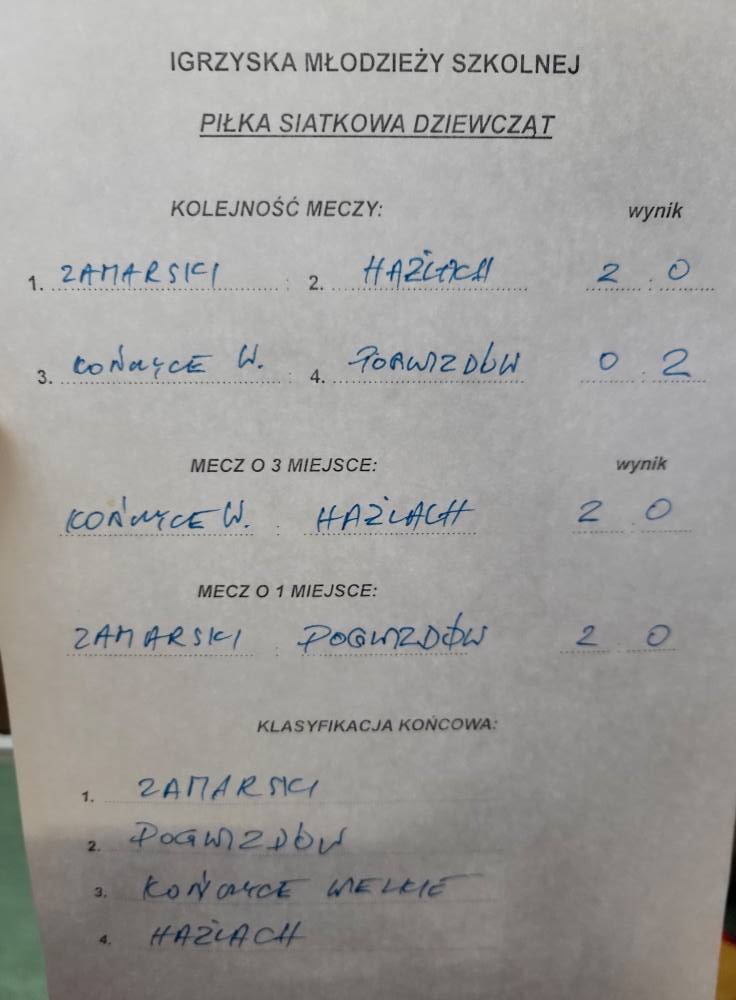 IGRZYSKA MŁODZIEŻY SZKOLNEJ
PIŁKA SIATKOWA DZIEWCZĄT
KOLEJNOŚĆ MECZY: wynik
1. ZAMARSKI : 2. HAŻLACH 2 : 0
3. KOŃCZYCE W. : 4. POGWIZDÓW 0 : 2
MECZ O 3 MIEJSCE: wynik
KOŃCZYCE W. : HAŻLACH 2 : 0
MECZ O 1 MIEJSCE:
ZAMARSKI : POGWIZDÓW 2 : 0
KLASYFIKACJA KOŃCOWA:
1. ZAMARSKI
2. POGWIZDÓW
3. KOŃCZYCE WIELKIE
4. HAŻLACH